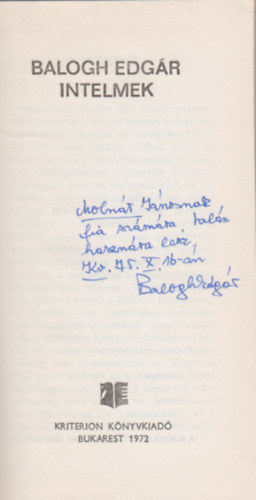 BALOGH EDGÁR
INTELMEK
Molnár Jánosnak
fia számára, talán
hasznára lesz,
Kv. 75. X. 16-án
Balogh Edgár
KRITERION KÖNYVKIADÓ
BUKAREST 1972